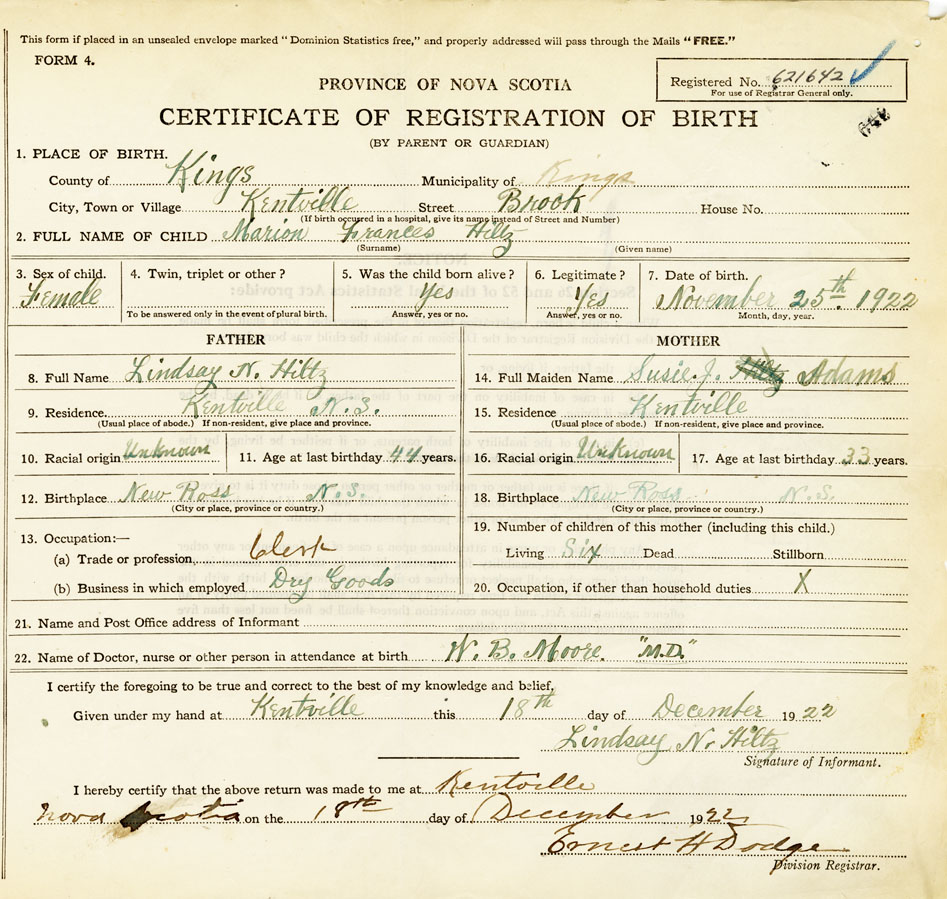 This form if placed in an unsealed envelope marked "Dominion Statistics free," and properly addressed will pass through the Mails "FREE."
FORM 4.
Registered No. 621642
For use of Registrar General only.
PROVINCE OF NOVA SCOTIA
CERTIFICATE OF REGISTRATION OF BIRTH
(BY PARENT OR GUARDIAN)
1. PLACE OF BIRTH.
County of Kings Municipality of Kings
City, Town or Village Kentville Street Brook House No.
(If birth occurred in a hospital, give its name instead of Street and Number)
2. FULL NAME OF CHILD Marion Frances Hiltz
(Surname) (Given name)
3. Sex of child. 4. Twin, triplet or other? 5. Was the child born alive? 6. Legitimate? 7. Date of birth.
Female Yes Yes November 25th 1922
To be answered only in the event of plural birth. Answer, yes or no. Answer, yes or no. Month, day, year.
FATHER MOTHER
8. Full Name Lindsay N. Hiltz 14. Full Maiden Name Susie. J. Hiltz Adams
9. Residence Kentville N.S. 15. Residence Kentville
(Usual place of abode.) If non-resident, give place and province. (Usual place of abode.) If non-resident, give place and province.
10. Racial origin Unknown 11. Age at last birthday 44 years. 16. Racial origin Unknown 17. Age at last birthday 33 years.
12. Birthplace New Ross N.S. 18. Birthplace New Ross N.S.
(City or place, province or country.) (City or place, province or country.)
13. Occupation:— 19. Number of children of this mother (including this child.)
(a) Trade or profession, Clerk Living Six Dead Stillborn
(b) Business in which employed Dry Goods 20. Occupation, if other than household duties X
21. Name and Post Office address of Informant
22. Name of Doctor, nurse or other person in attendance at birth W. B. Moore. "M.D."
I certify the foregoing to be true and correct to the best of my knowledge and belief,
Given under my hand at Kentville this 18th day of December 1922
Lindsay N. Hiltz
Signature of Informant.
I hereby certify that the above return was made to me at Kentville
Nova Scotia on the 18th day of December 1922
Ernest H Dodge
Division Registrar.